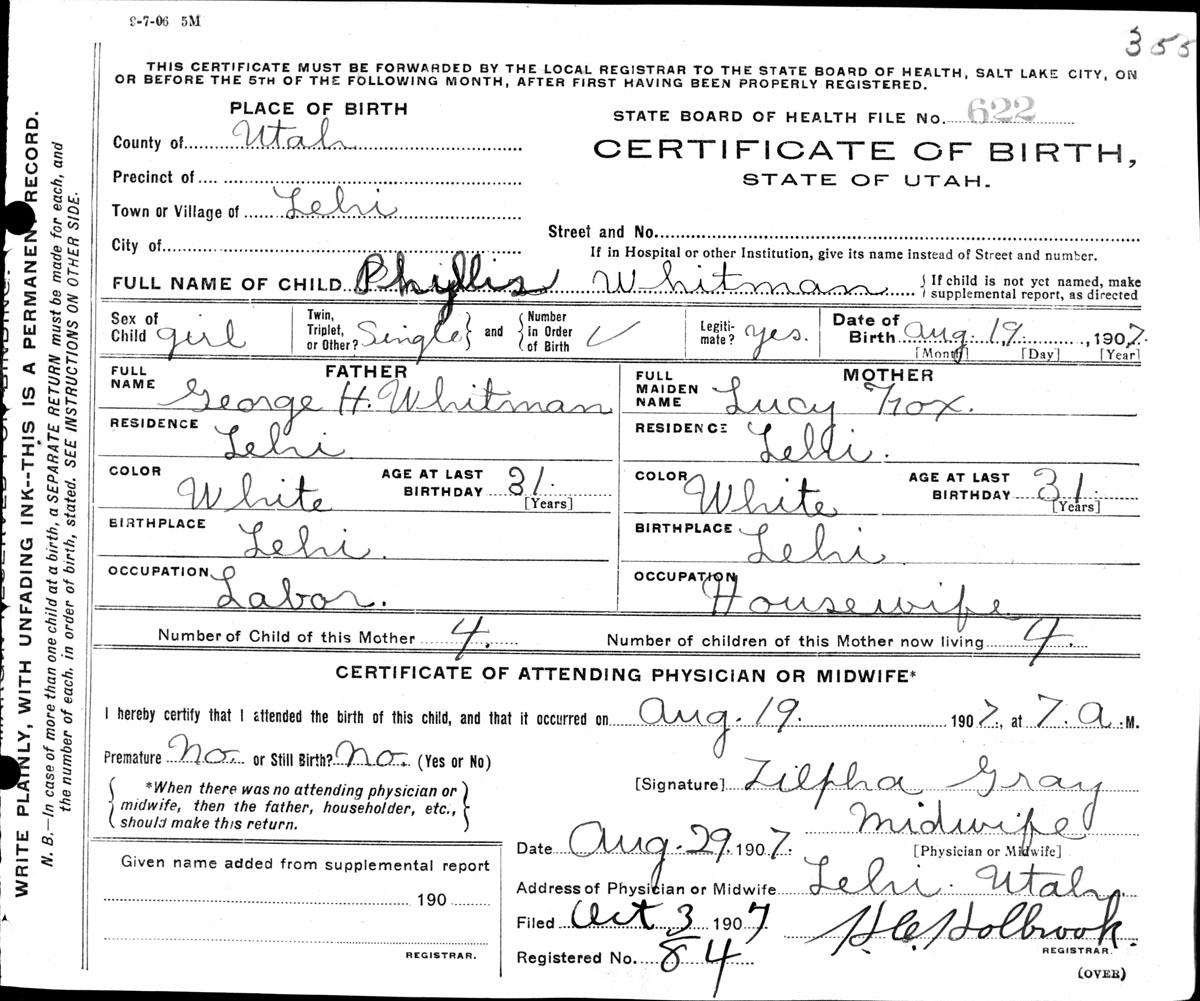 9-7-06 5M
355
THIS CERTIFICATE MUST BE FORWARDED BY THE LOCAL REGISTRAR TO THE STATE BOARD OF HEALTH, SALT LAKE CITY, ON
OR BEFORE THE 5TH OF THE FOLLOWING MONTH, AFTER FIRST HAVING BEEN PROPERLY REGISTERED.
PLACE OF BIRTH
STATE BOARD OF HEALTH FILE No. 622
County of Utah
CERTIFICATE OF BIRTH,
STATE OF UTAH.
Precinct of
Town or Village of Lehi
Street and No.
City of
If in Hospital or other Institution, give its name instead of Street and number.
FULL NAME OF CHILD Phyllis Whitman { If child is not yet named, make
supplemental report, as directed
Sex of
Child girl
Twin,
Triplet,
or Other? Single } and { Number
in Order
of Birth ✓
Legiti-
mate? yes.
Date of
Birth Aug. 19, 1907.
[Month] [Day] [Year]
FATHER
FULL
NAME George H. Whitman
MOTHER
FULL
MAIDEN
NAME Lucy Fox.
RESIDENCE Lehi
RESIDENCE Lehi.
COLOR White
AGE AT LAST
BIRTHDAY 31.
[Years]
COLOR White
AGE AT LAST
BIRTHDAY 31.
[Years]
BIRTHPLACE Lehi.
BIRTHPLACE Lehi
OCCUPATION Labor.
OCCUPATION Housewife
Number of Child of this Mother 4.
Number of children of this Mother now living 4.
CERTIFICATE OF ATTENDING PHYSICIAN OR MIDWIFE*
I hereby certify that I attended the birth of this child, and that it occurred on Aug. 19. 1907, at 7. A M.
Premature No. or Still Birth? No. (Yes or No)
{ *When there was no attending physician or
midwife, then the father, householder, etc.,
should make this return. }
[Signature] Zilpha Gray
Midwife
[Physician or Midwife]
Date Aug. 29. 1907.
Address of Physician or Midwife Lehi. Utah
Given name added from supplemental report
190
REGISTRAR.
Filed Oct 3 1907
H. C. Holbrook.
REGISTRAR.
Registered No. 84
(OVER)
WRITE PLAINLY, WITH UNFADING INK--THIS IS A PERMANENT RECORD.
N. B.—In case of more than one child at a birth, a SEPARATE RETURN must be made for each, and
the number of each, in order of birth, stated. SEE INSTRUCTIONS ON OTHER SIDE.